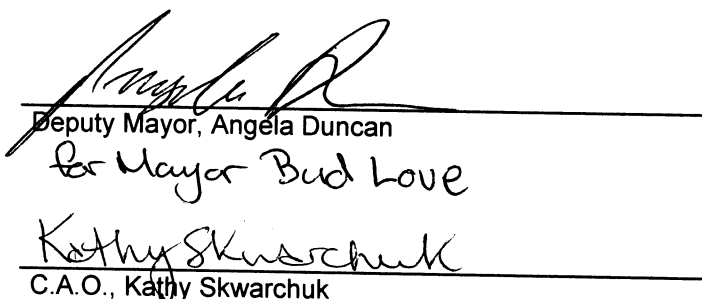 Angela D
Deputy Mayor, Angela Duncan
for Mayor Bud Love
Kathy Skwarchuk
C.A.O., Kathy Skwarchuk